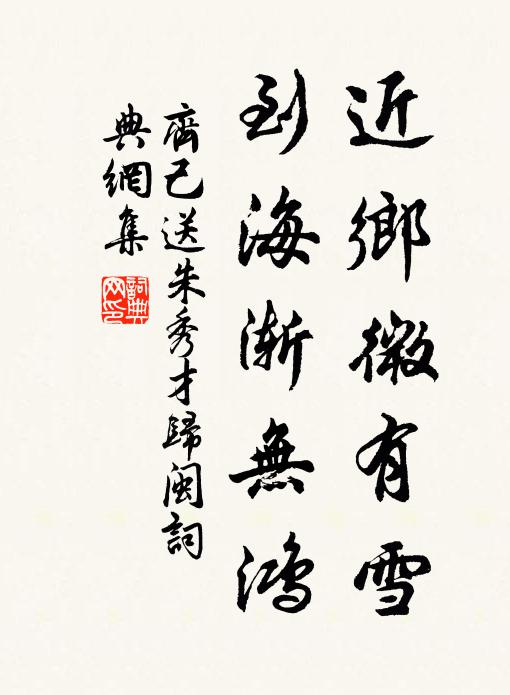 近鄉微有雪
到海漸無鴻
齊己送朱秀才歸閩詞
典網集
詞典
网印